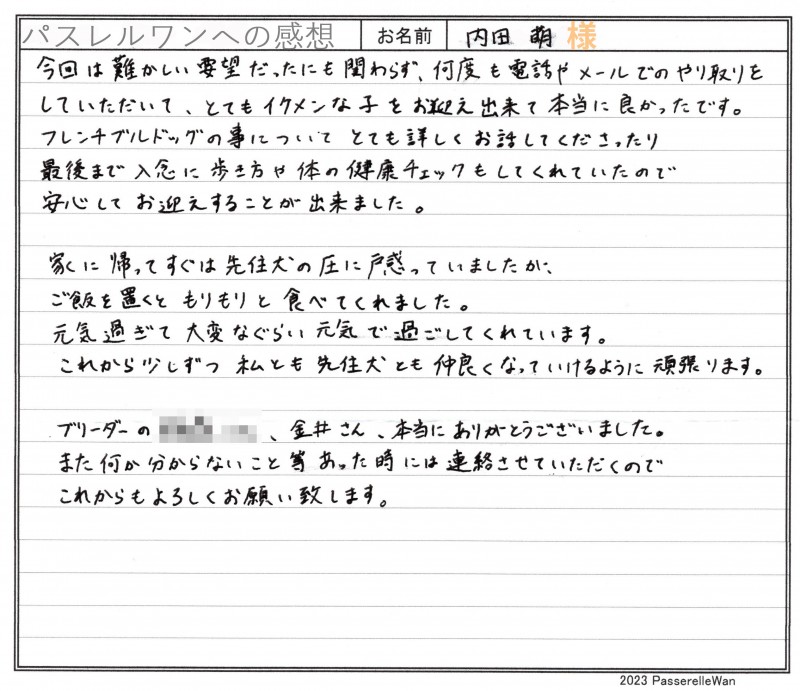 パスレルワンへの感想 お名前 内田 萌 様
今回は難かしい要望だったにも関わらず、何度も電話やメールでのやり取りを
していただいて、とてもイケメンな子をお迎え出来て本当に良かったです。
フレンチブルドッグの事について とても詳しくお話してくださったり
最後まで入念に歩き方や体の健康チェックもしてくれていたので
安心してお迎えすることが出来ました。
家に帰ってすぐは先住犬の圧に戸惑っていましたが、
ご飯を置くともりもりと食べてくれました。
元気過ぎて大変なぐらい元気で過ごしてくれています。
これから少しずつ私とも先住犬とも仲良くなっていけるように頑張ります。
ブリーダーの 、金井さん、本当にありがとうございました。
また何か分からないこと等あった時には連絡させていただくので
これからもよろしくお願い致します。
2023 PasserelleWan